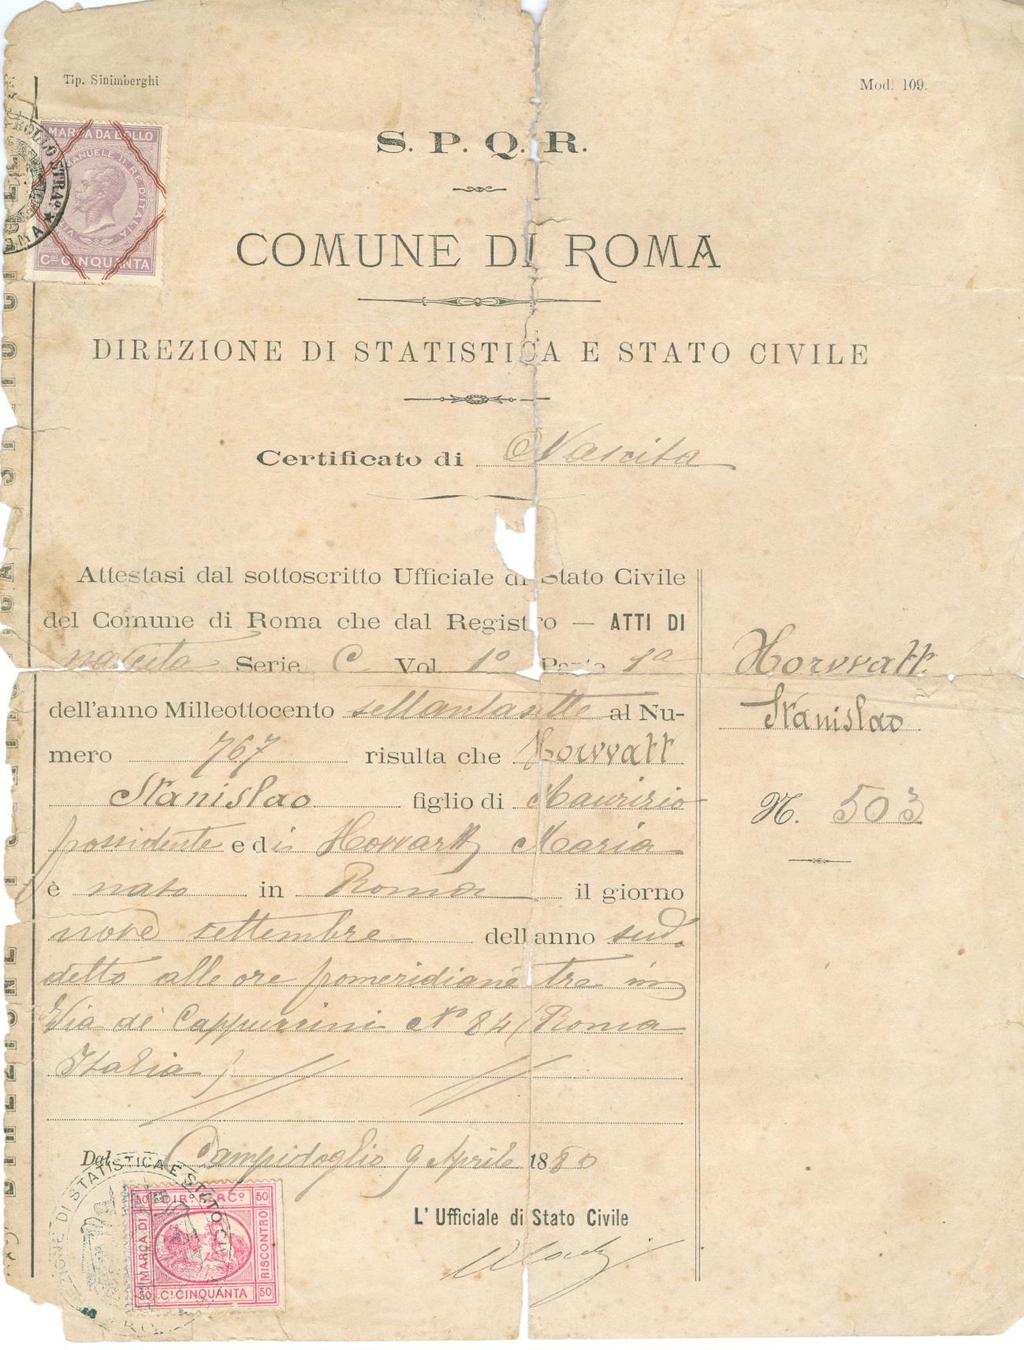 Tip. Sinimberghi
Mod. 109.
MARCA DA BOLLO
VITT. EMANUELE II RE D'ITALIA
C.MI CINQUANTA
S. P. Q. R.
COMUNE DI ROMA
DIREZIONE DI STATISTICA E STATO CIVILE
Certificato di Nascita
Attestasi dal sottoscritto Ufficiale di Stato Civile
del Comune di Roma che dal Registro — ATTI DI
nascita Serie C Vol 1º Parte 1ª
dell'anno Milleottocento settantasette al Nu-
mero 767 risulta che Horwatt
Stanislao figlio di Maurizio
possidente e di Horwartt Maria
è nato in Roma il giorno
nove settembre dell'anno sud.
detto alle ore pomeridiane tre in
Via de' Cappuccini Nº 84 (Roma
Italia)
Dal Campidoglio 9 Aprile 1880
L'Ufficiale di Stato Civile
Horwatt
Stanislao
N. 503
DIREZIONE DI STATISTICA E STATO CIVILE
50 50
MARCA DI RISCONTRO
50 C.I CINQUANTA 50